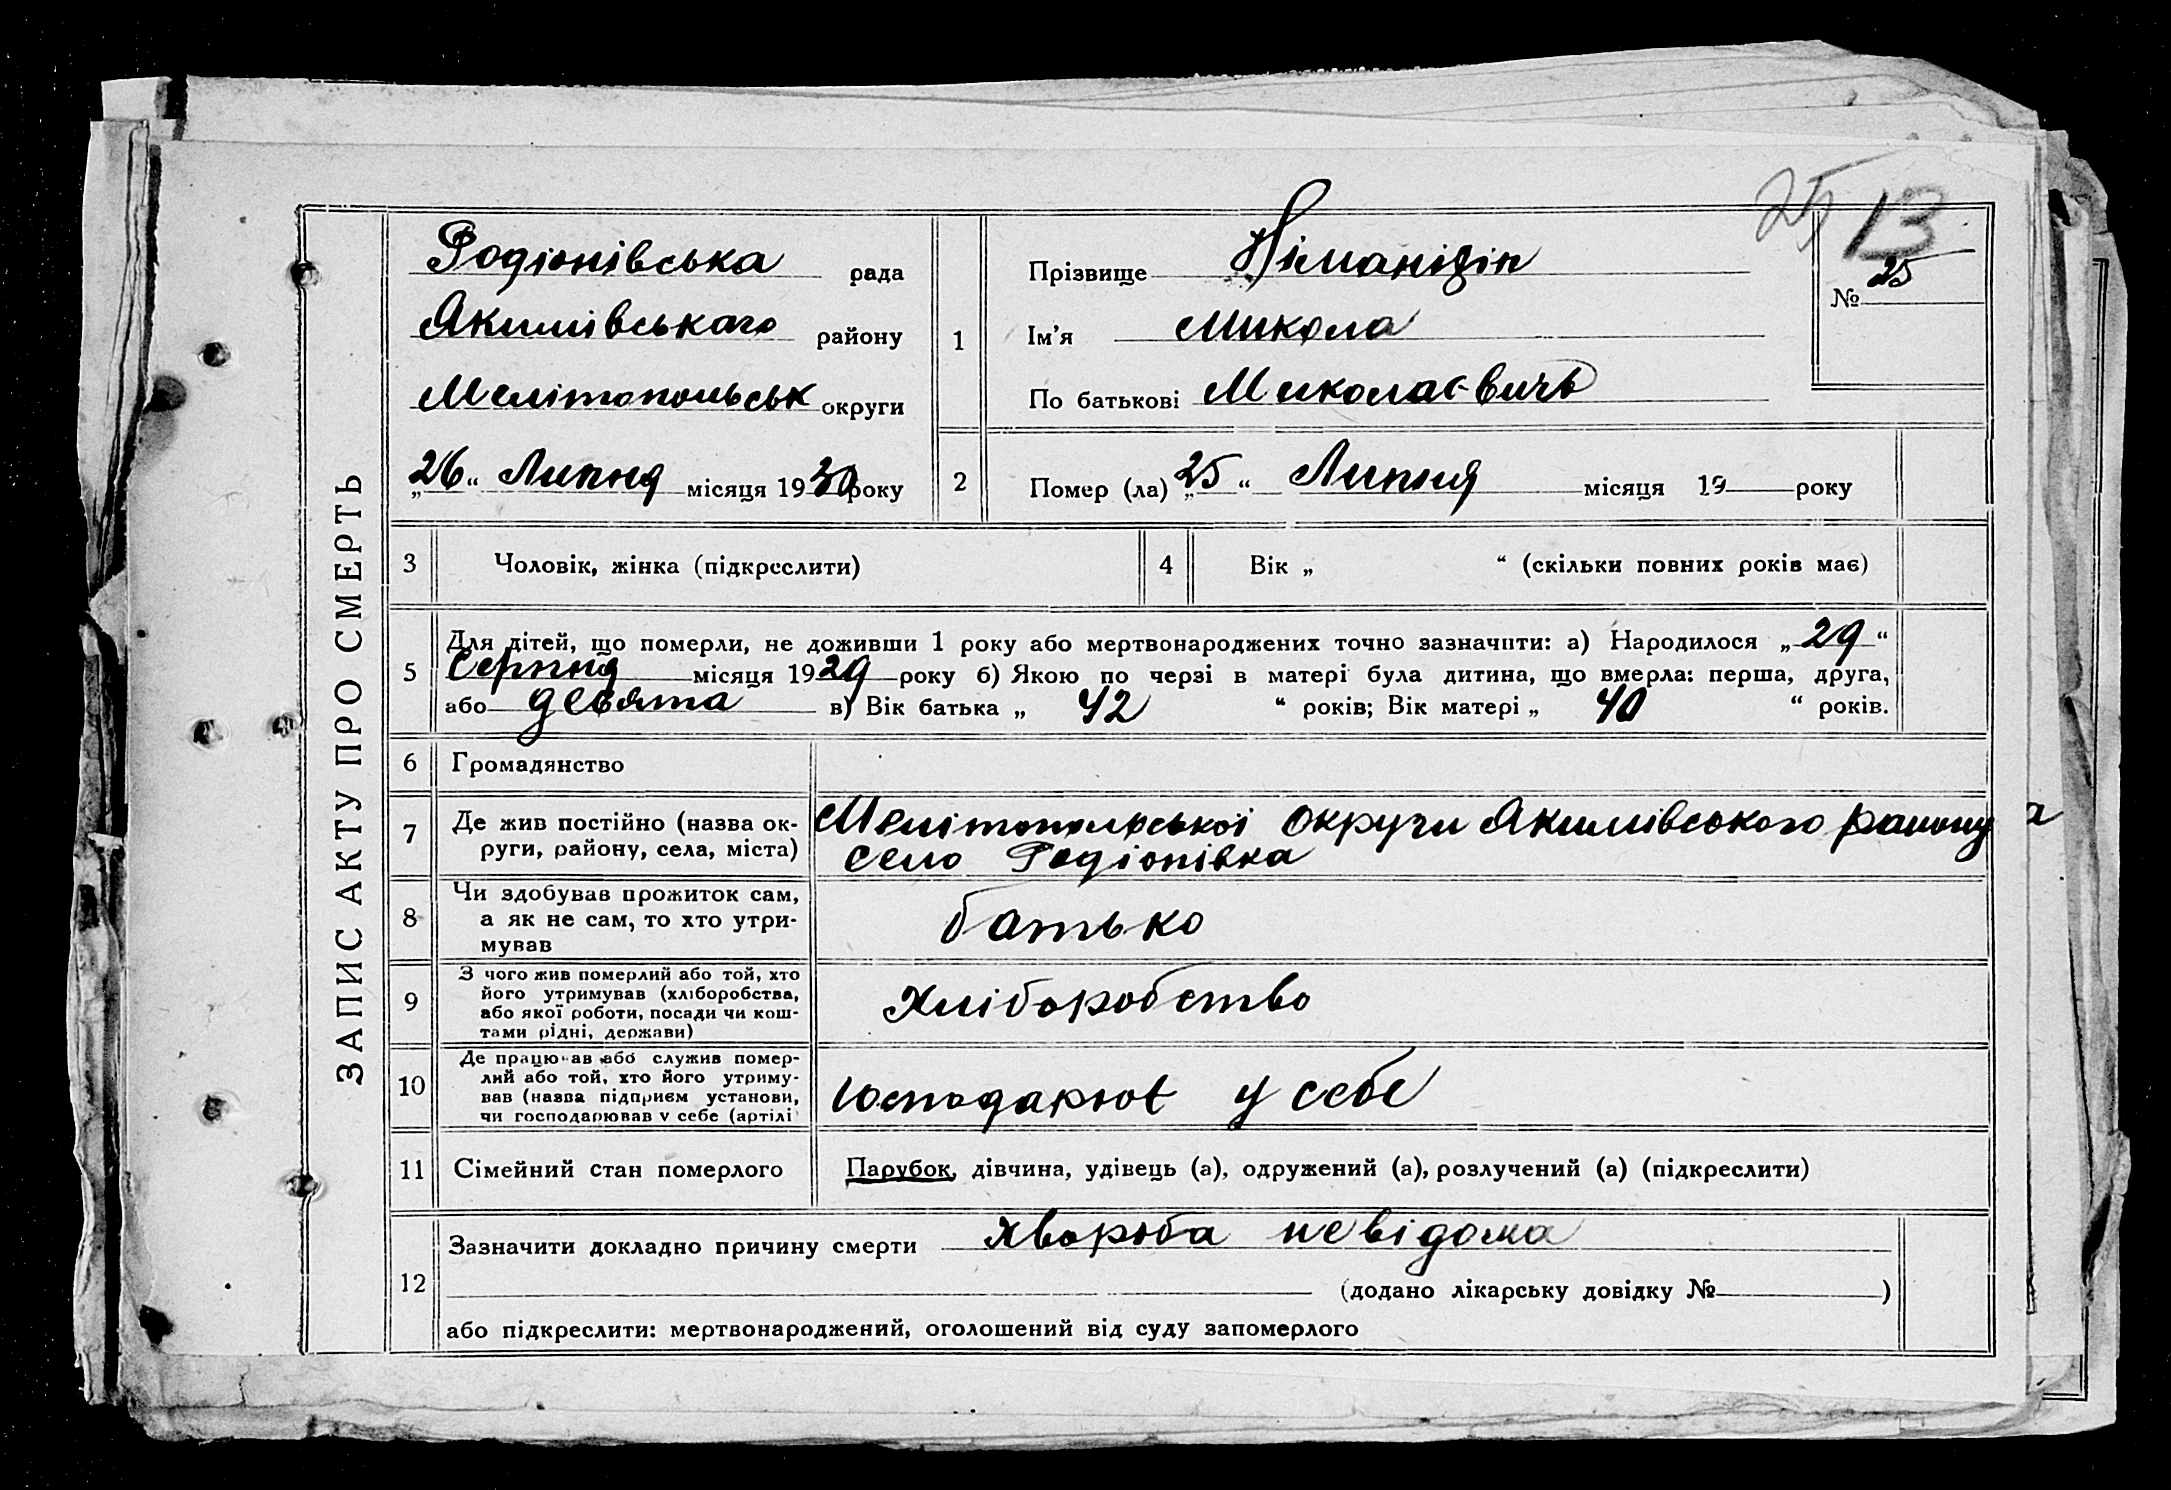 25 13
ЗАПИС АКТУ ПРО СМЕРТЬ
Родіонівська рада
Якимівського району
Мелітопольськ округи
„26“ Липня місяця 1930 року
1
Прізвище
Ім'я Микола
По батькові Миколаєвичь
№ 25
2 Помер (ла) „25“ Липня місяця 19 року
3 Чоловік, жінка (підкреслити)
4 Вік „ “ (скільки повних років має)
5 Для дітей, що померли, не доживши 1 року або мертвонароджених точно зазначити: а) Народилося „29“
Серпня місяця 1929 року б) Якою по черзі в матері була дитина, що вмерла: перша, друга,
або девята в) Вік батька „ 42 “ років; Вік матері „ 40 “ років.
6 Громадянство
7 Де жив постійно (назва ок-
руги, району, села, міста)
Мелітопольської округи Якимівського району
село Родіонівка
8 Чи здобував прожиток сам,
а як не сам, то хто утри-
мував
батько
9 З чого жив померлий або той, хто
його утримував (хліборобства,
або якої роботи, посади чи кош-
тами рідні, держави)
Хліборобство
10 Де працював або служив помер-
лий або той, хто його утриму-
вав (назва підприєм установи,
чи господарював у себе (артілі
господарює у себе
11 Сімейний стан померлого
Парубок, дівчина, удівець (а), одружений (а), розлучений (а) (підкреслити)
12 Зазначити докладно причину смерти хвороба невідома
(додано лікарську довідку № )
або підкреслити: мертвонароджений, оголошений від суду запомерлого